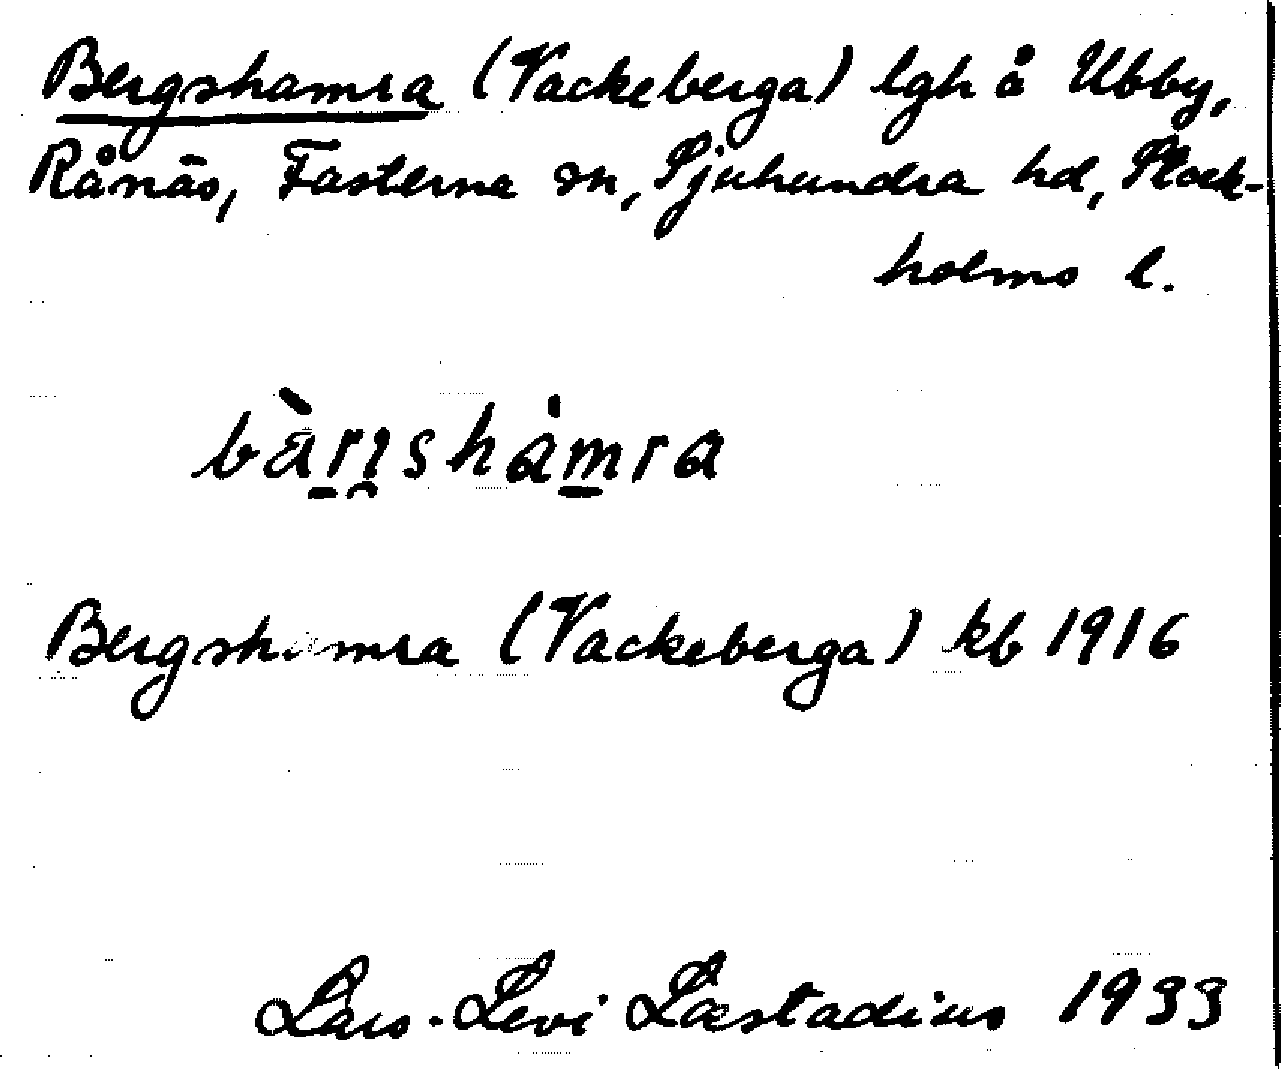 Bergshamra (Vackeberga) lgh å Ubby,
Rånäs, Fasterna sn, Sjuhundra hd, Stock-
holms l.
bà̄rı̯shȧmra
Bergshamra (Vackeberga) kb 1916
Lars-Levi Læstadius 1933